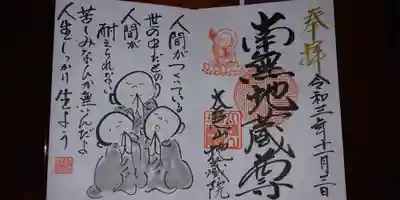 奉拝
令和三年十一月二日
南無地蔵尊
地蔵院
人間がつくっている
世の中だもの
人間が
耐えられない
苦しみなんか無いんだよ
人生しっかり生きよう